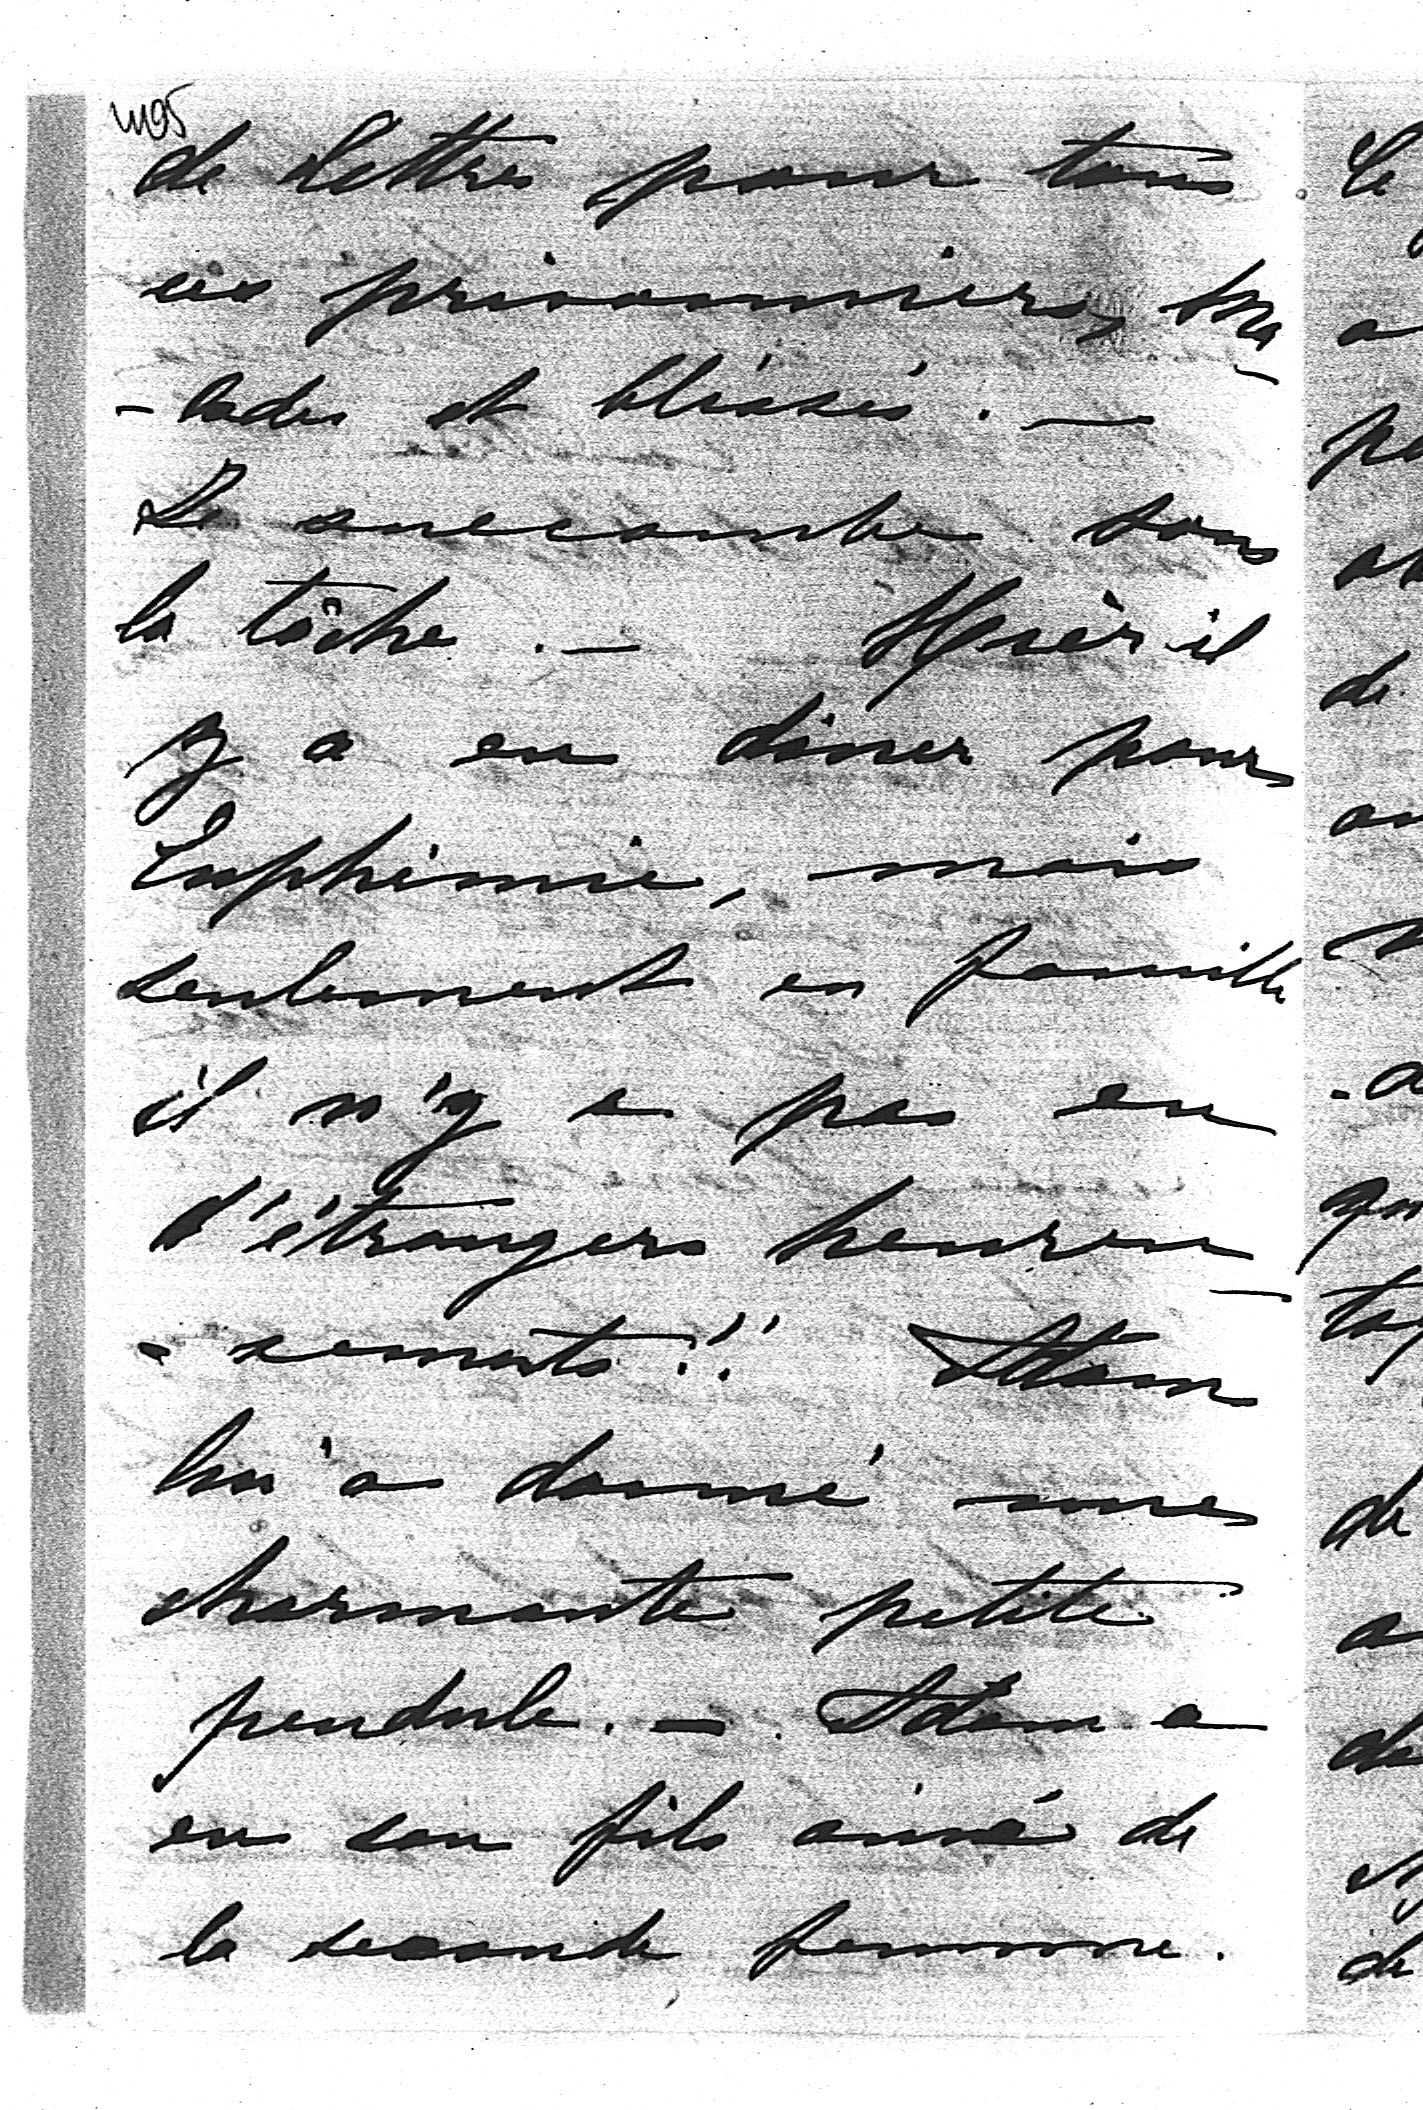 de lettres pour tous
ces prisonniers, ma
- lades et blessés. —
Je succombe sous
la tâche. — Hièr il
y a eu dîner pour
Euphémie, mais
seulement en famille
il n'y a pas eu
d'étrangers heureu -
- sements!! Adam
lui a donné une
charmante petite
pendule. — . Adam a
eu son fils ainé de
la seconde femme.